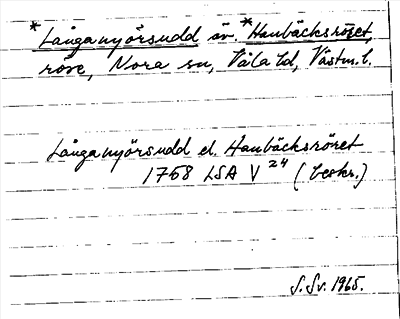 *Långanyörsudd äv. *Hanbäcksröset,
röse, Nora sn, Våla hd, Västm. l.
Långanyörsudd el. Hanbäcksröret
1768 LSA V 24 (beskr.)
S. Sv. 1965.